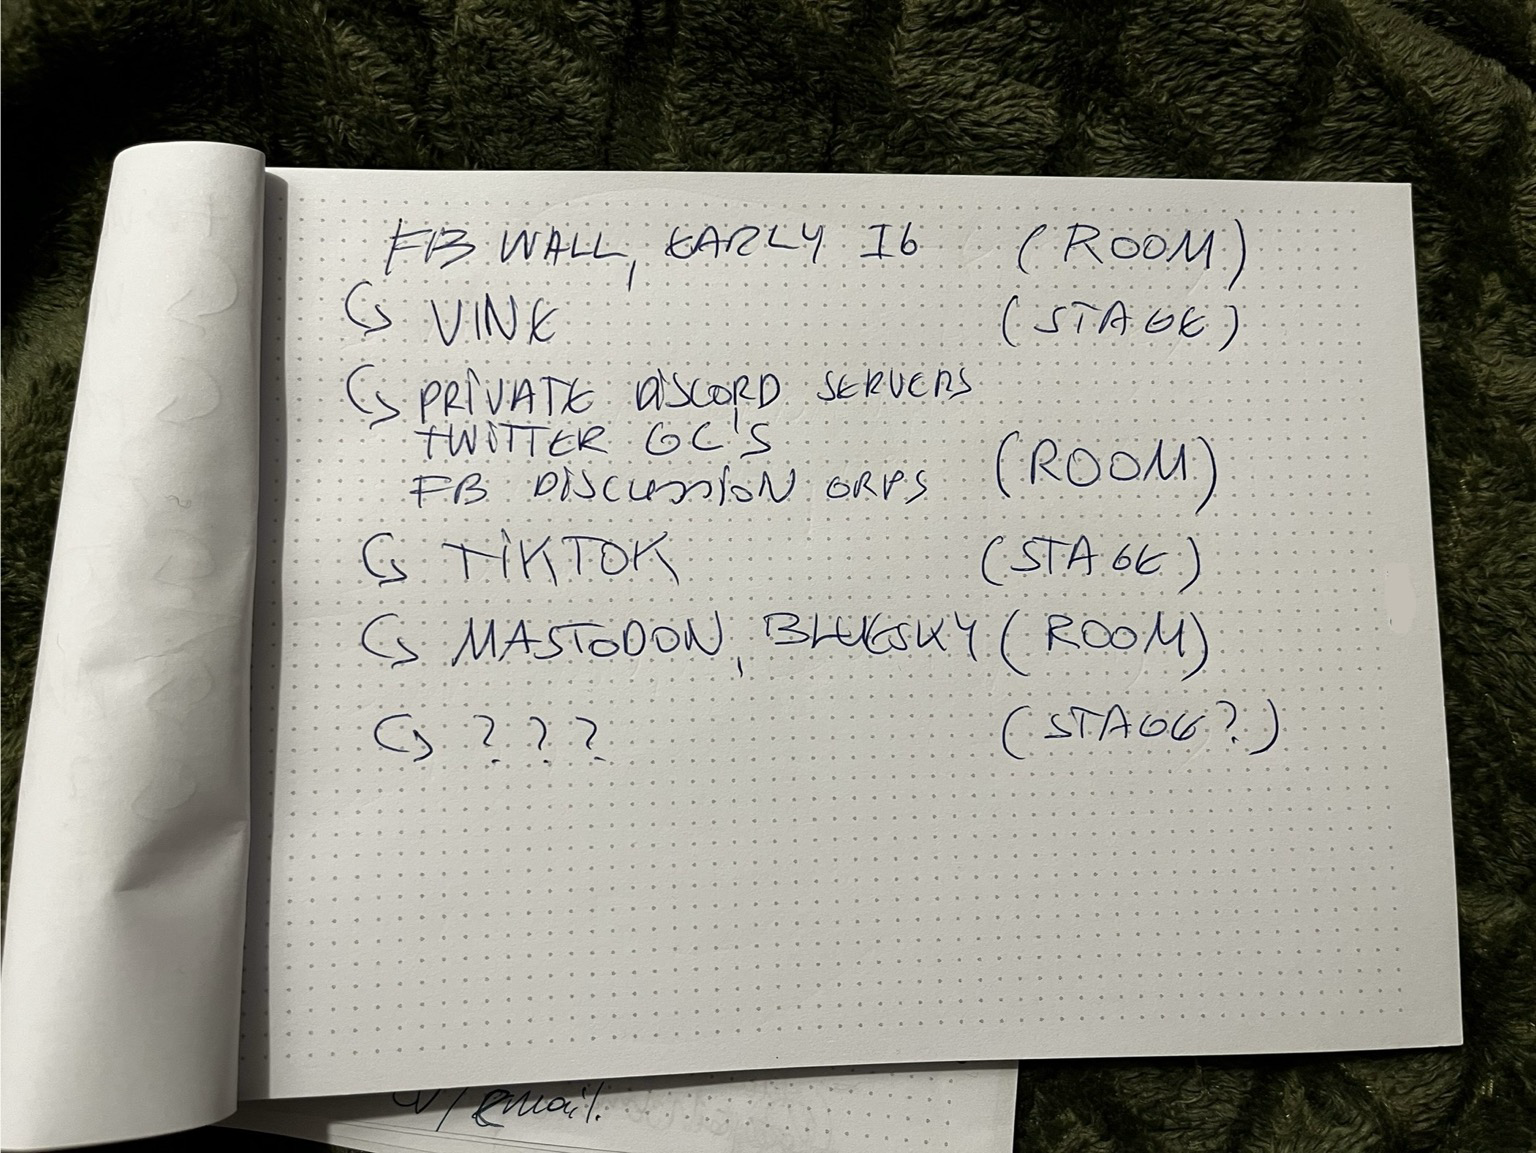 FB WALL, EARLY IG (ROOM)
↳ VINE (STAGE)
↳ PRIVATE DISCORD SERVERS
TWITTER GC'S
FB DISCUSSION GRPS (ROOM)
↳ TIKTOK (STAGE)
↳ MASTODON, BLUESKY (ROOM)
↳ ??? (STAGE?)
w/ email.